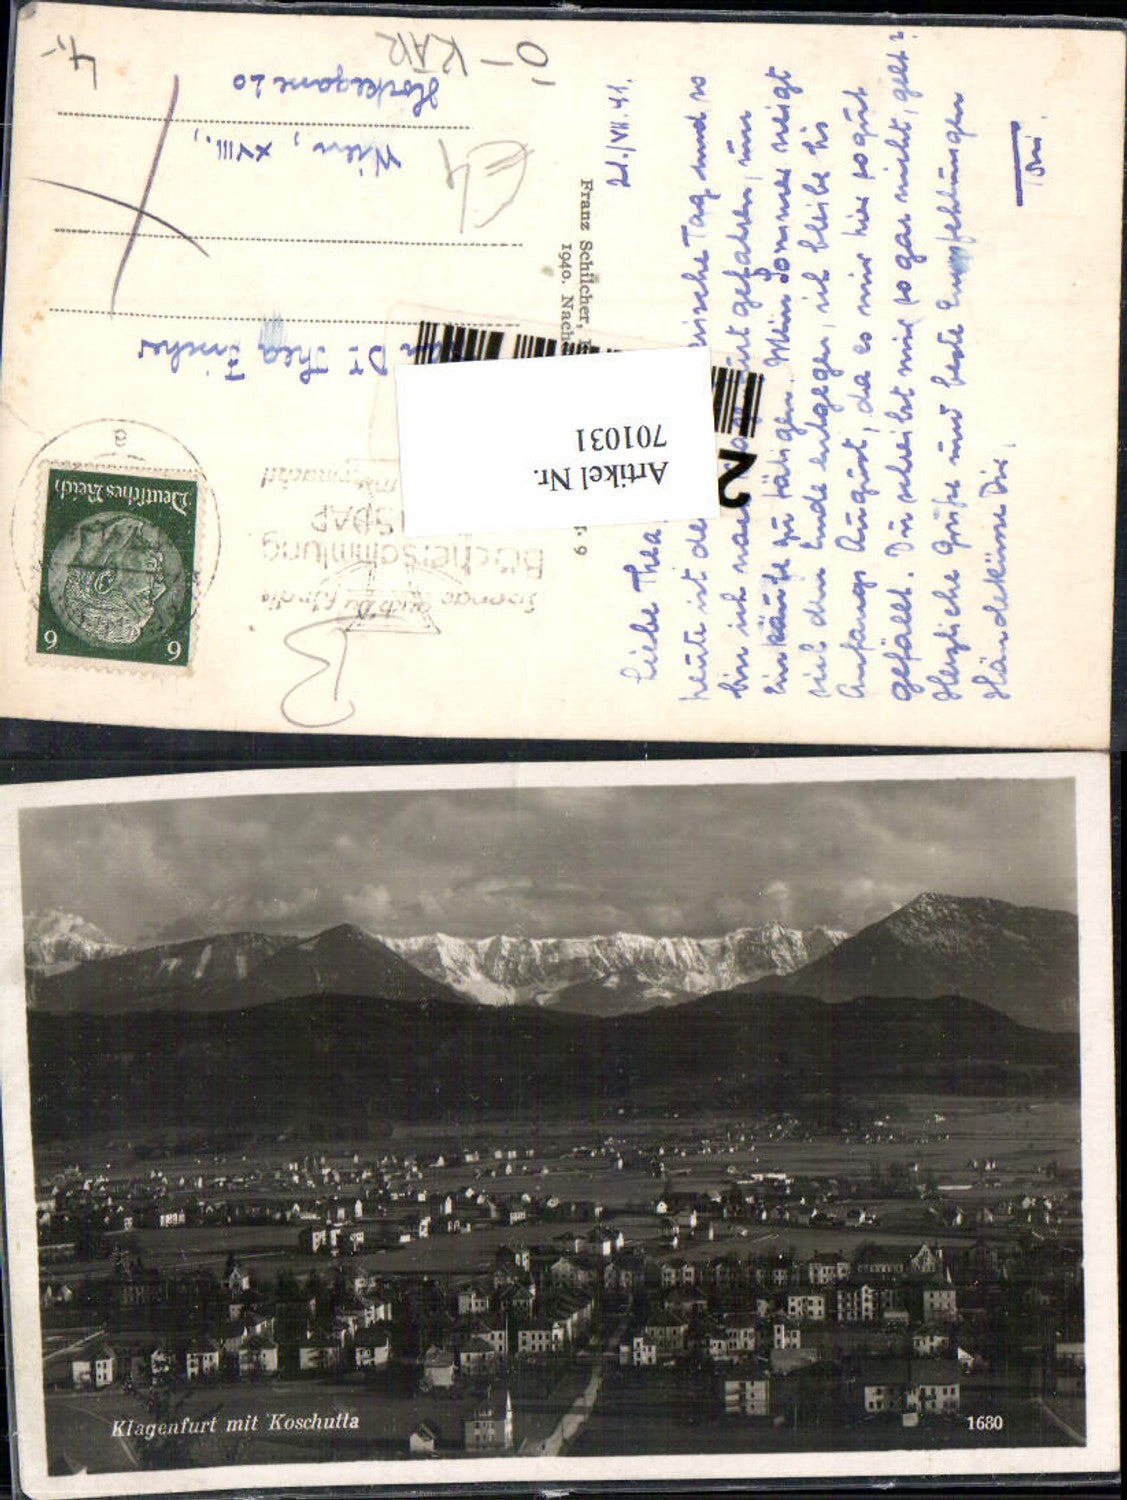 4,-
Ö-KAR
21./VII. 41.
Liebe Thea
heute ist de
ische Tag und so
bin ich nac
gefahren, um
Einkäufe zu tätigen. Mein Sommer neigt
sich dem Ende entgegen, ich bleibe bis
Anfangs August, da es mir hier so gut
gefällt. Du schreibst mir so gar nicht, gelt?
Herzliche Grüße und beste Empfehlungen
Händeküsse Dir,
Toni.
Franz Schilcher, K
1940. Nach
r. 9
Dr. Thea Fischer
Wien, XVIII.,
Hockegasse 20
Artikel Nr.
701031
2
Deutsches Reich
6 6
Büchersammlung
NSDAP
Klagenfurt mit Koschutta
1680